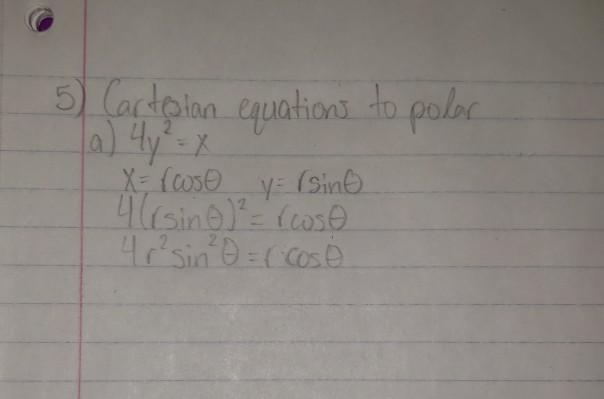 5) Cartesian equations to polar
a) 4y² = x
x = rcosθ y = rsinθ
4(rsinθ)² = rcosθ
4r²sin²θ = r cosθ